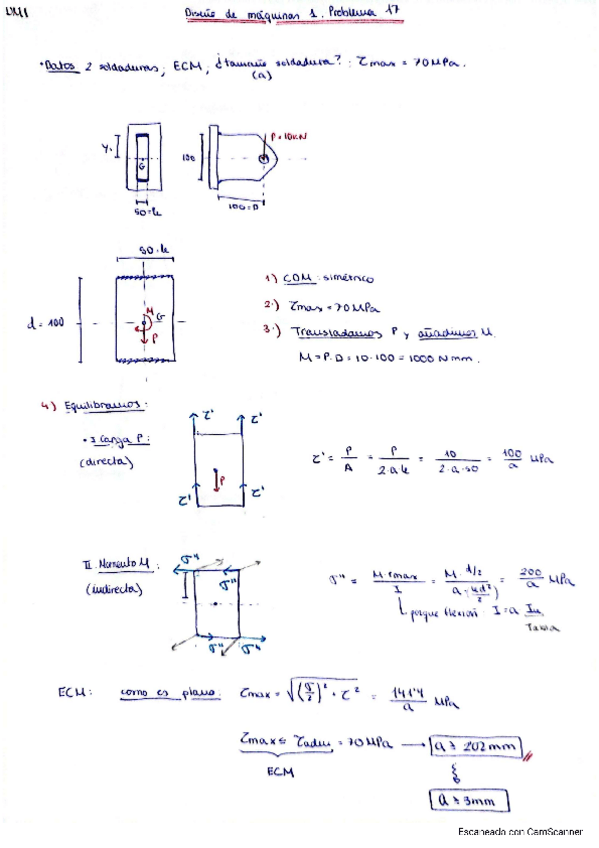 DM1
Diseño de máquinas 1. Problema 17
• Datos 2 soldaduras; ECM; ¿tamaño soldadura? : τmax = 70 MPa.
(a)
y.
G
50=k
100
P=10kN
100=D
50=k
d=100
M
G
P
1) CDM: simétrico
2.) τmax = 70 MPa
3.) Transladamos P y añadimos M.
M = P·D = 10·100 = 1000 Nmm.
4) Equilibramos:
• I carga P:
(directa)
τ'
τ'
τ'
τ'
P
τ' = P/A = P/2·a·k = 10/2·a·50 = 100/a MPa
II. Momento M:
(indirecta)
σ"
σ"
σ"
σ"
σ" = M·rmax/I = M·d/2/a·(kd²/2) = 200/a MPa
porque flexión: I = a Iu
Tabla
ECM: como es plano: τmax = √((σ/2)² + τ²) = 141'4/a MPa
τmax ≤ τadm = 70 MPa → a ≥ 202 mm
ECM
a ≥ 3mm
Escaneado con CamScanner